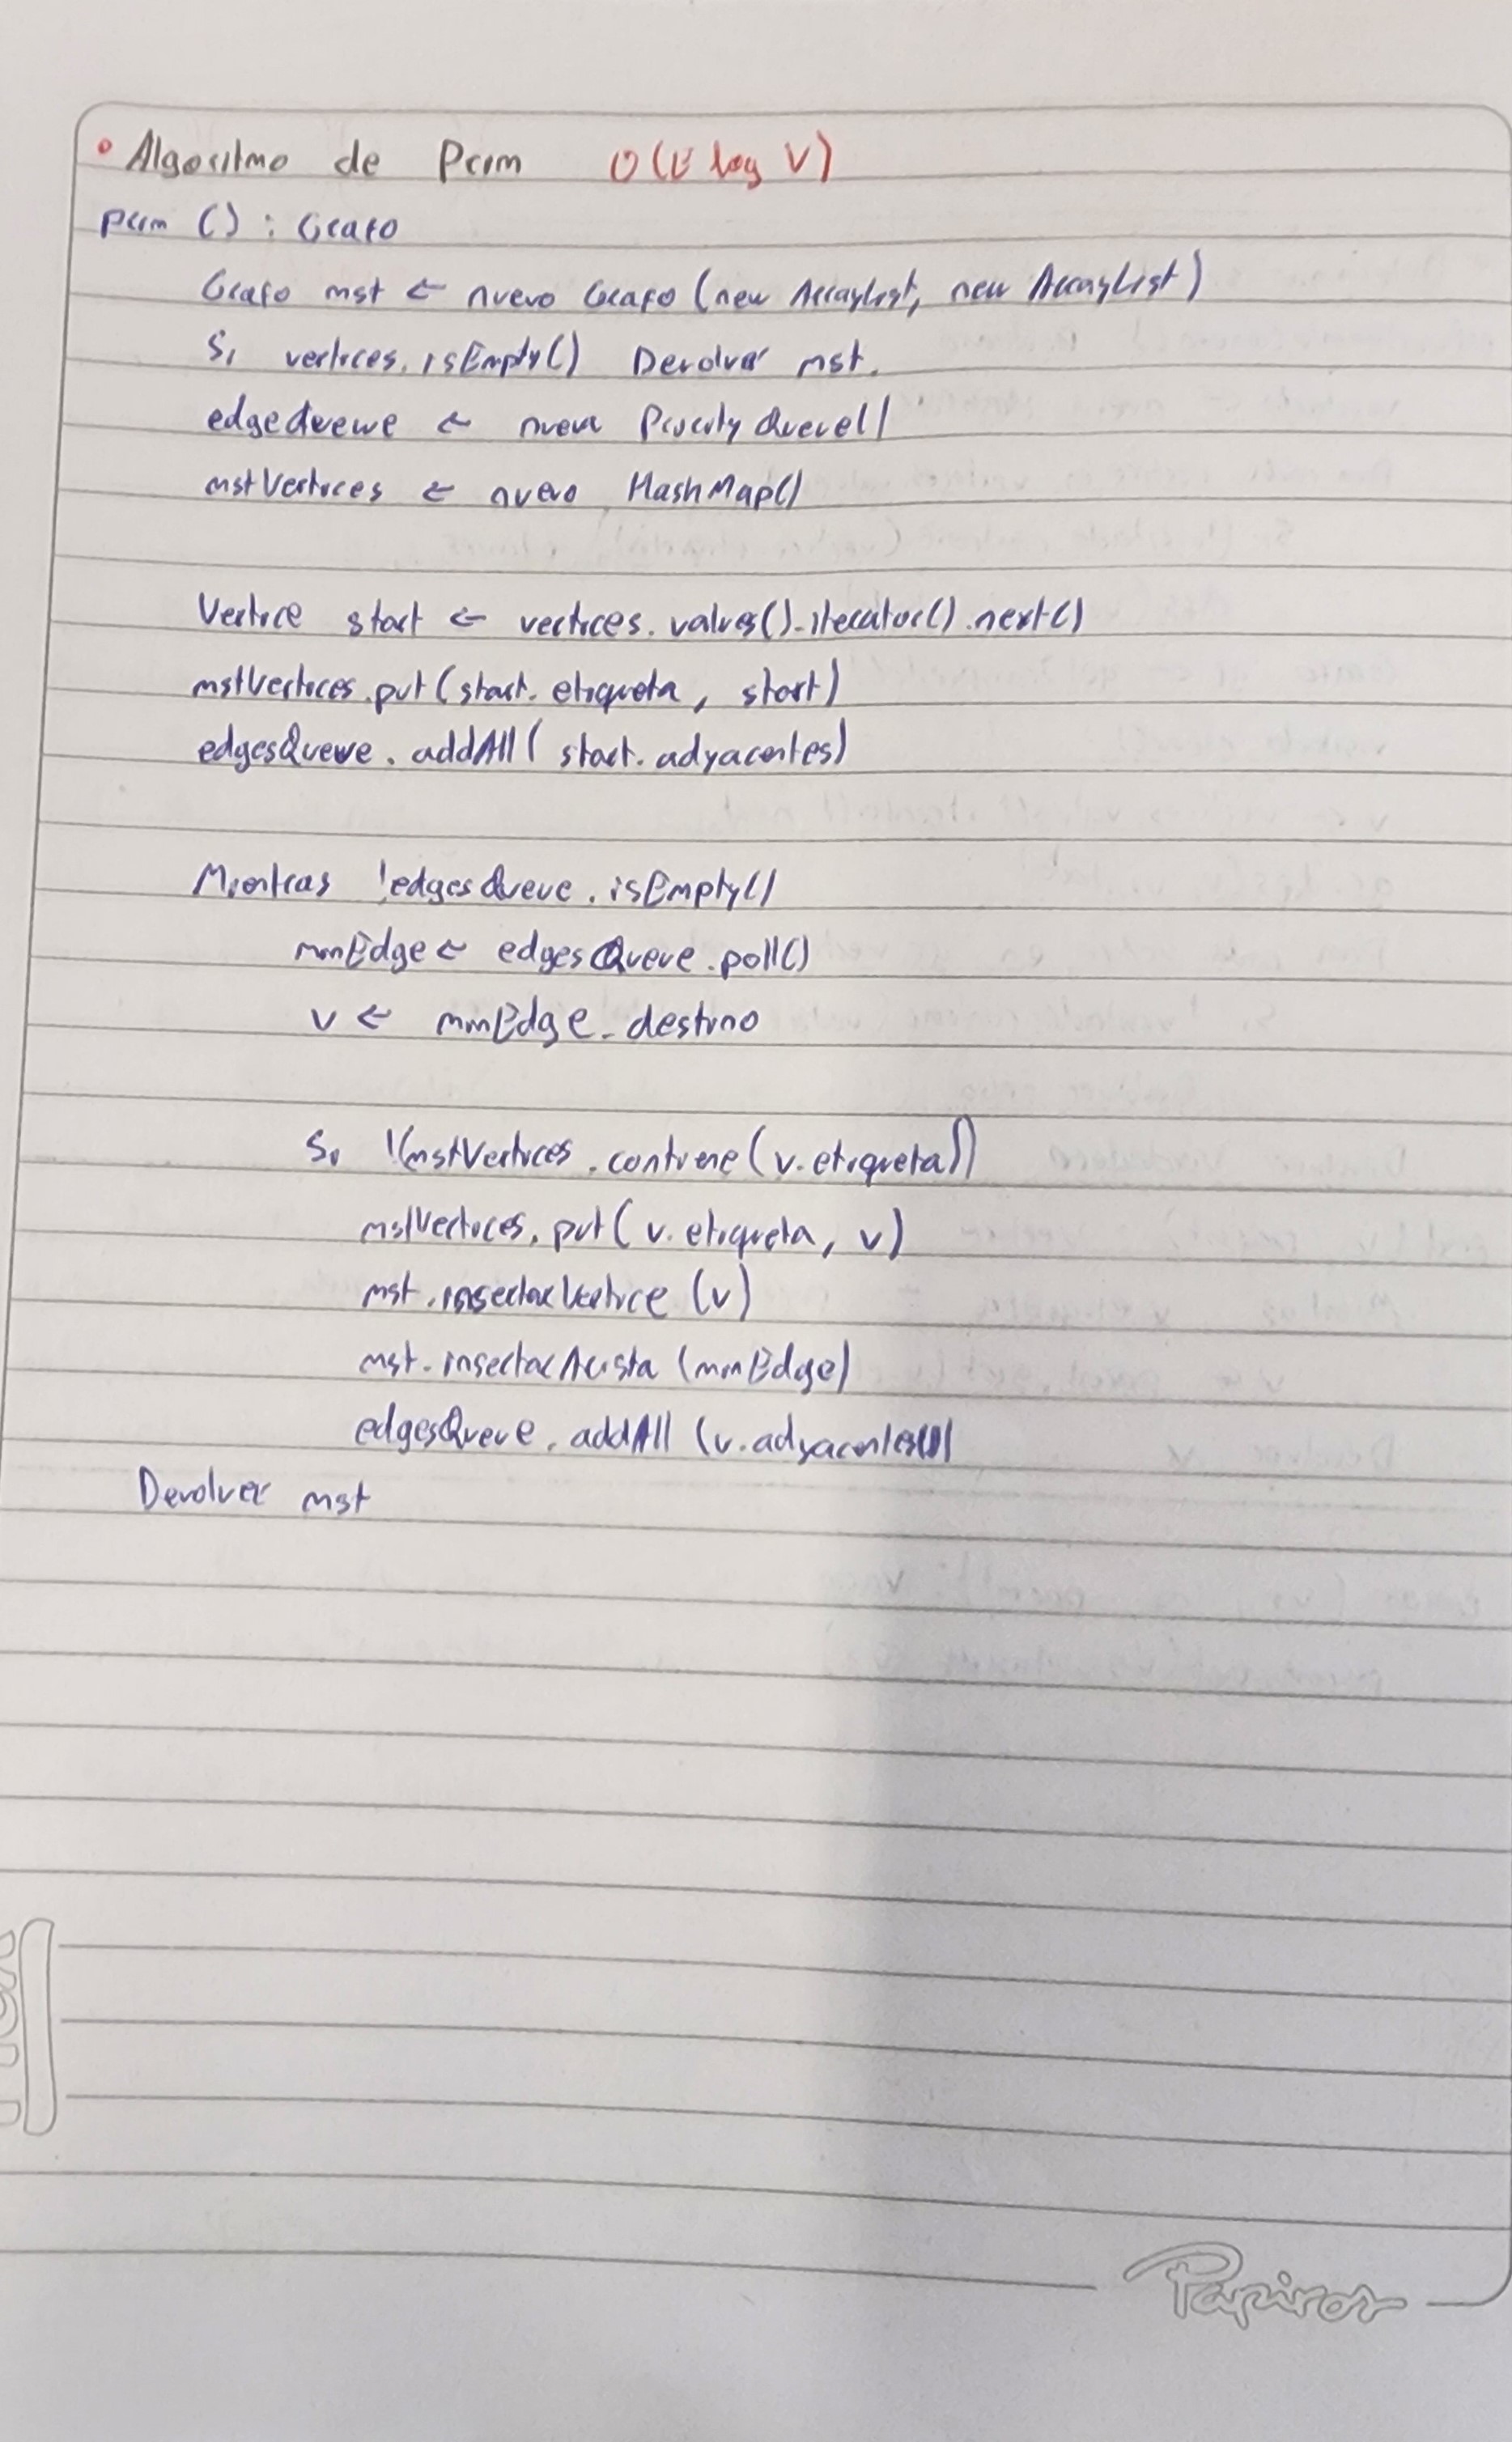 • Algoritmo de Prim O(E log V)
prim () : Grafo
Grafo mst ← nuevo Grafo (new ArrayList, new ArrayList)
Si vertices.isEmpty() Devolver mst.
edgeQueue ← nueva PriorityQueue()
mstVertices ← nuevo HashMap()
Vertice start ← vertices.values().iterator().next()
mstVertices.put(start.etiqueta, start)
edgesQueue.addAll(start.adyacentes)
Mientras !edgesQueue.isEmpty()
minEdge ← edgesQueue.poll()
v ← minEdge.destino
Si !(mstVertices.contiene(v.etiqueta))
mstVertices.put(v.etiqueta, v)
mst.insertarVertice(v)
mst.insertarArista(minEdge)
edgesQueue.addAll(v.adyacentes())
Devolver mst
Papiros